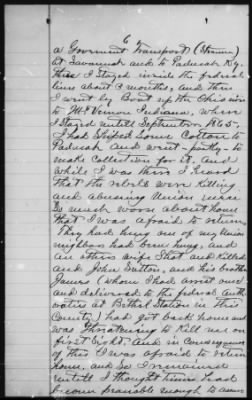 6
a Government Transport (Steamer)
at Savannah and to Paducah Ky.
There I stayed inside the federal
lines about 3 months, and then
I went by Boat up the Ohio river
to Mt Vernon Indiana, where
I stayed until September 1865-
I had shiped some Cotton to
Paducah and went - partly - to
make collection for it. And
while I was there I heard
that the rebels were killing
and abusing Union men
so much worse about home
that I was afraid to return.
They had hung one of my Union
neighbors had been hung, and
an others wife Shot and Killed
and John Sutton, and his brother
James (whom I had assist
and delivered to the federal Auth
orities at Bethel Station in this
County) had got back home and
was threatening to Kill me on
first sight, And in consequence
of this I was afraid to return
home, and so I remained
untill I thought times had
become peaceable enough to